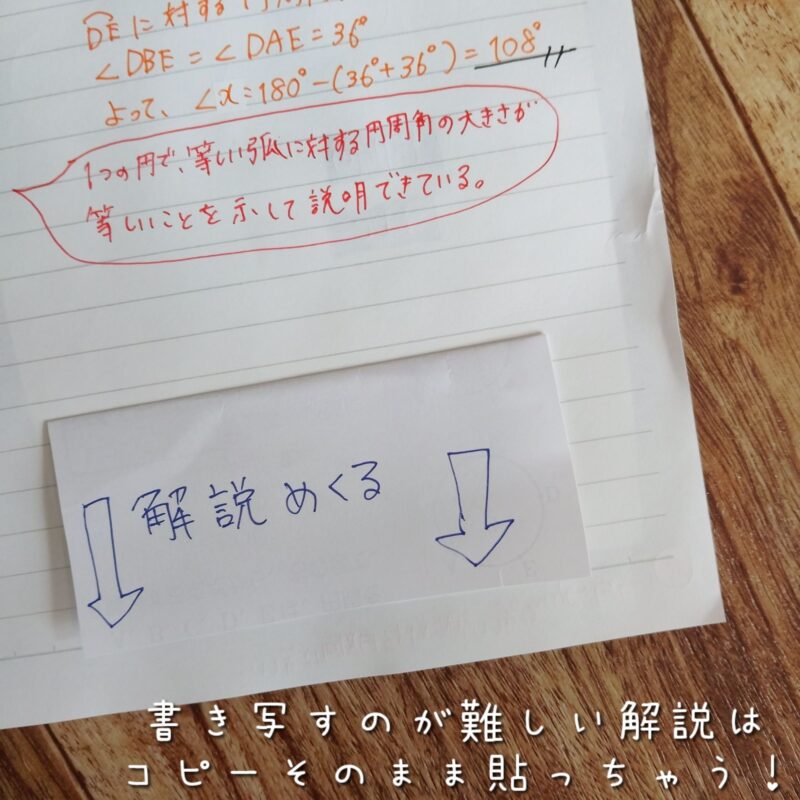 DEに対する
∠DBE=∠DAE=36°
よって、∠x=180°-(36°+36°)=108°
1つの円で、等しい弧に対する円周角の大きさが
等しいことを示して説明できている。
解説めくる
書き写すのが難しい解説は
コピーそのまま貼っちゃう!